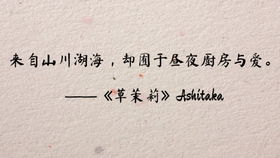 来自山川湖海，却囿于昼夜厨房与爱。
——《草茉莉》Ashitaka